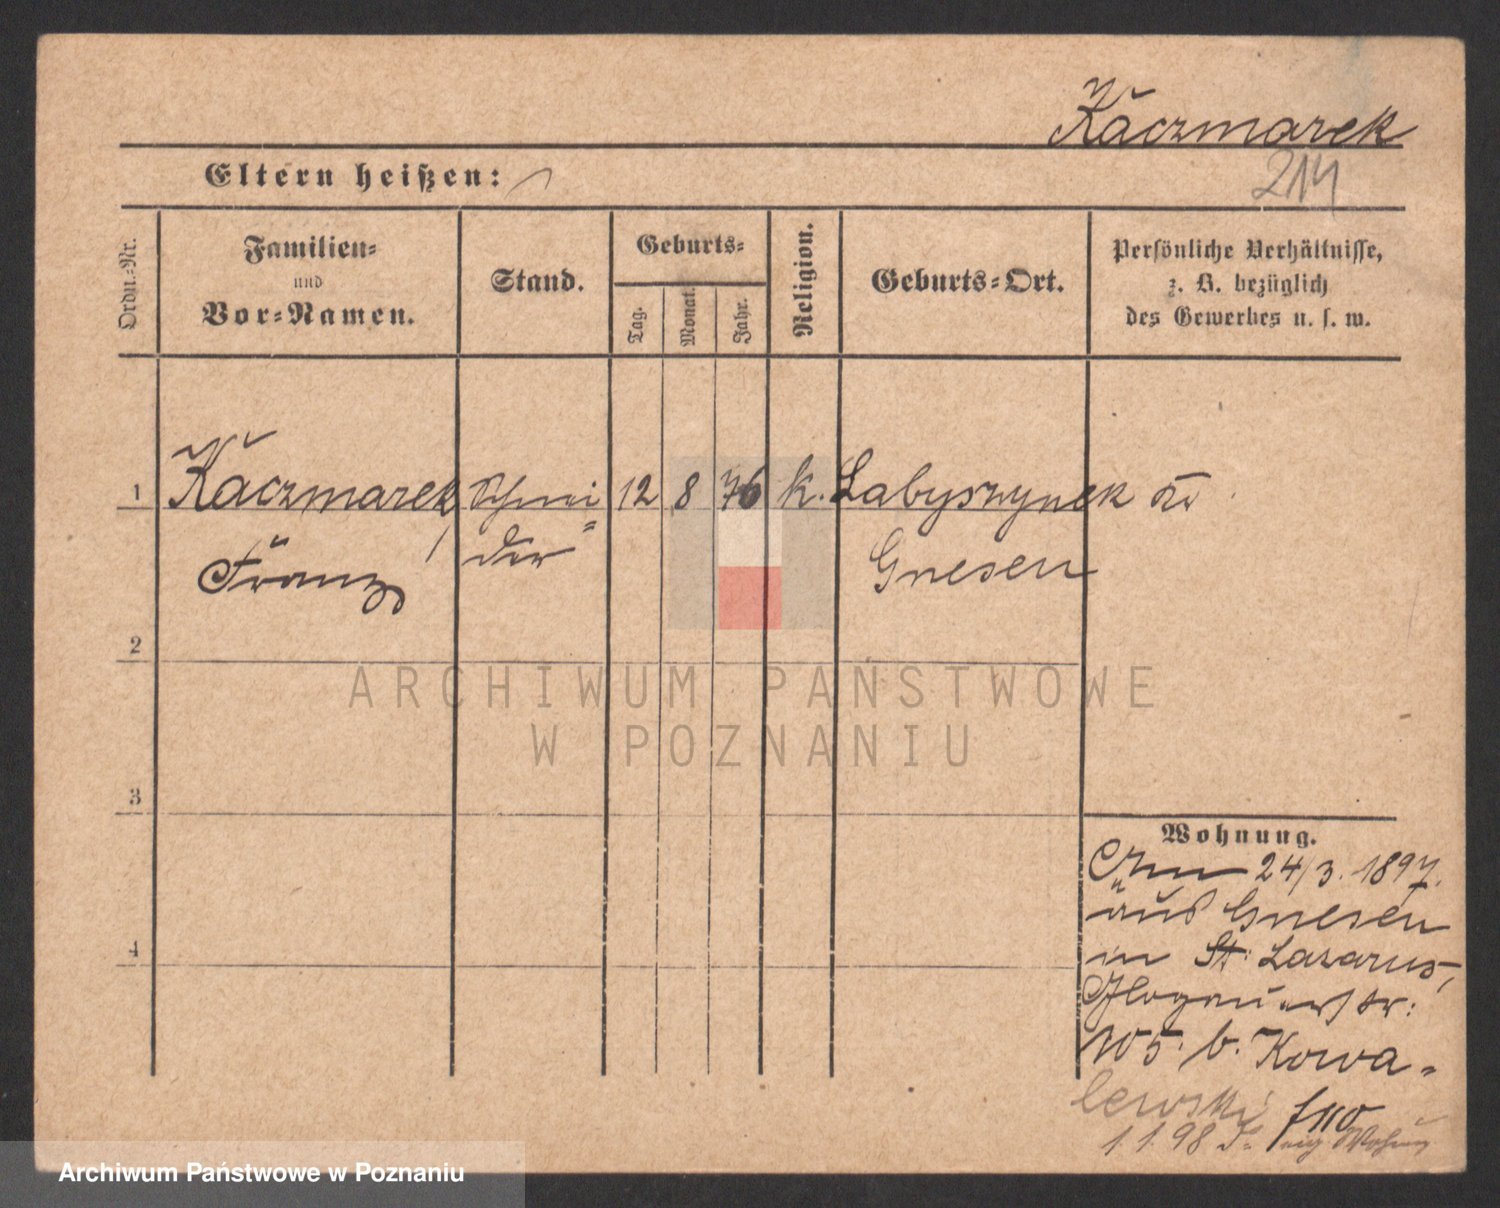 Kaczmarek
214
Eltern heißen:
Ordn.-Nr.
Familien-
und
Vor-Namen.
Stand.
Geburts-
Tag.
Monat.
Jahr.
Religion.
Geburts-Ort.
Persönliche Verhältnisse,
z. B. bezüglich
des Gewerbes u. s. w.
1 Kaczmarek, Schnei= 12 8 76 k. Labyszynek Kr.
Franz der Gnesen
2
3
4
Wohnung.
Am 24/3. 1897.
aus Gnesen
in St. Lazarus,
Glogauerstr:
105. b. Kowa=
lewski
1.1.98
ARCHIWUM PAŃSTWOWE
W POZNANIU
Archiwum Państwowe w Poznaniu